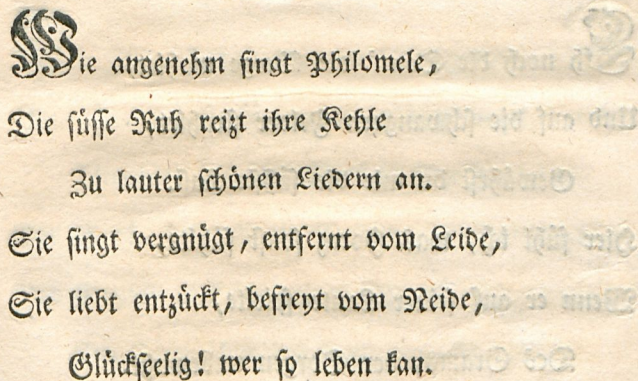 Wie angenehm singt Philomele,
Die süsse Ruh reizt ihre Kehle
Zu lauter schönen Liedern an.
Sie singt vergnügt, entfernt vom Leide,
Sie liebt entzückt, befreyt vom Neide,
Glückseelig! wer so leben kan.